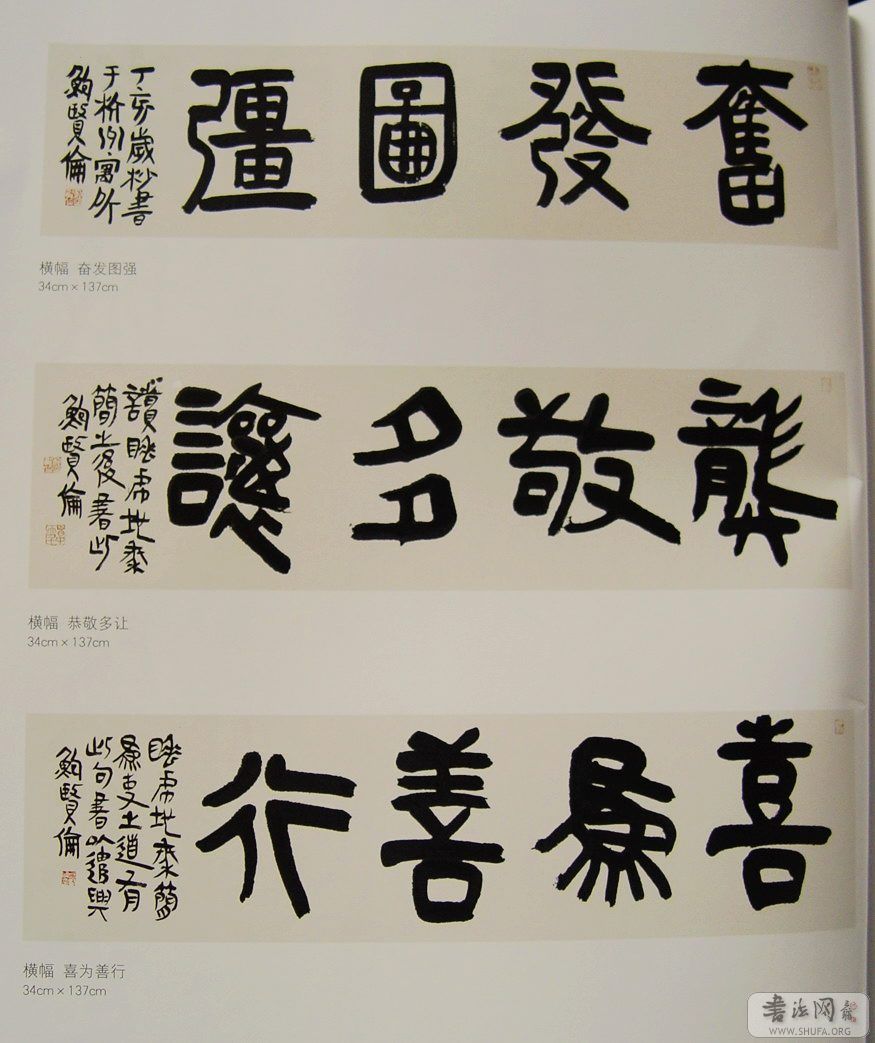 奮發圖彊
丁亥歲杪書
于橋川寓所
鮑賢倫
横幅 奋发图强
34cm × 137cm
龔敬多讓
讀睡虎地秦
簡之後書此
鮑賢倫
横幅 恭敬多让
34cm × 137cm
喜爲善行
睡虎地秦簡
爲吏之道有
此句書以遣興
鮑賢倫
横幅 喜为善行
34cm × 137cm
書法网
WWW.SHUFA.ORG